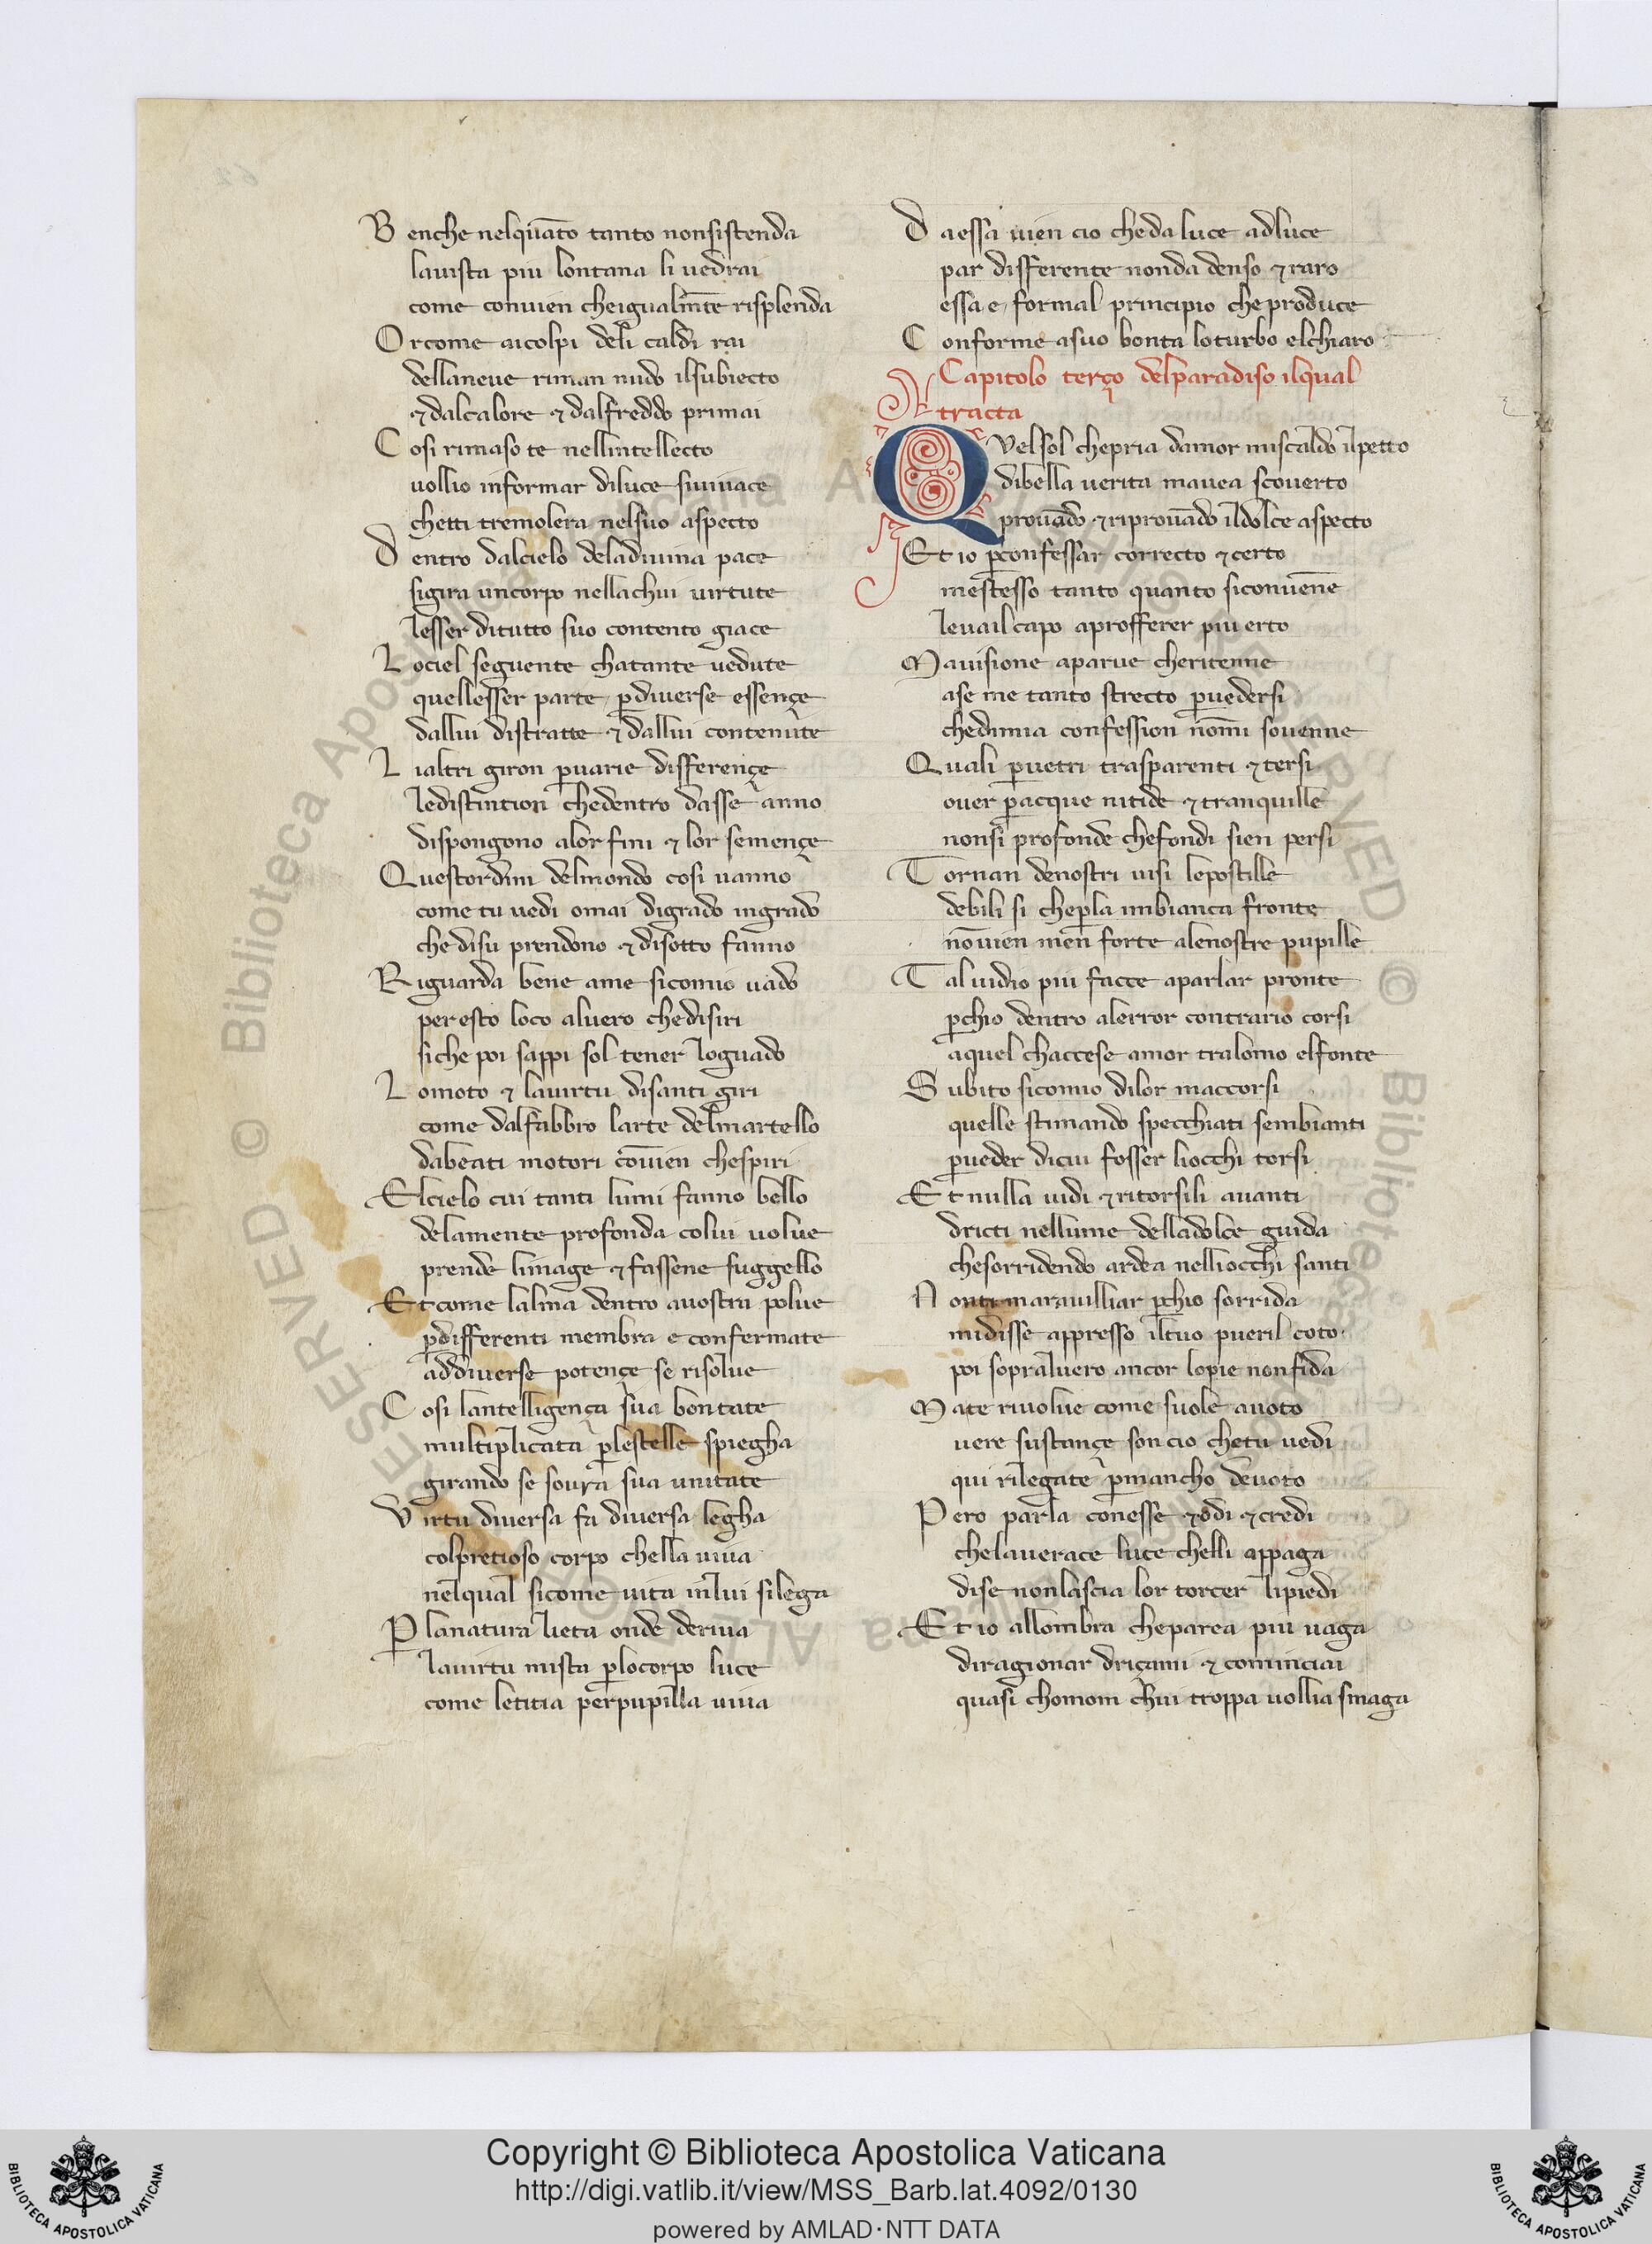 B enche nelquāto tanto nonsistenda
lauista piu lontana li uedrai
come conuien cheigualmēte risplenda
O rcome aicolpi deli caldi rai
dellaneue riman nudo ilsubiecto
⁊ dalcalore ⁊ dalfreddo primai
C osi rimaso te nellintellecto
uollio informar diluce siuiuace
chetti tremolera nelsuo aspecto
D entro dalcielo deladiuina pace
sigira uncorpo nellachui uirtute
lesser ditutto suo contento giace
L ociel seguente chatante uedute
quellesser parte ꝑdiuerse essençe
dallui distratte ⁊ dallui contenute
L ialtri giron ꝑuarie differençe
ledistintion chedentro dasse anno
dispongono alor fini ⁊ lor semençe
Q uestordini delmondo cosi uanno
come tu uedi omai digrado ingrado
che disu prendono ⁊ disotto fanno
R iguarda bene ame sicomio uado
peresto loco aluero chedisiri
siche poi sappi sol tener loguado
L omoto ⁊ lauirtu disanti giri
come dalfabbro larte delmartello
dabeati motori cōuien chespiri
E lcielo cui tanti lumi fanno bello
delamente profonda colui uolue
prende limage ⁊ fassene suggello
E t come lalma dentro auostra polue
ꝑdifferenti membra e confermate
addiuerse potençe se risolue
C osi lantelligença sua bontate
multiplicata ꝑlestelle spiegha
girando se soura sua unitate
V irtu diuersa fa diuersa legha
colpretioso corpo chella uiua
nelqual sicome uita inlui silega
P̱ lanatura lieta onde deriua
lauirtu mista ꝑlocorpo luce
come letitia perpupilla uiua
D aessa uien cio cheda luce adluce
par differente nonda denso ⁊ raro
essa e formal principio cheproduce
C onforme asuo bonta loturbo elchiaro
Capitolo terço delparadiso ilqual
tracta
Q Velsol chepria damor miscaldo ilpetto
dibella uerita mauea scouerto
prouādo ⁊ riprouādo ildolce aspecto
E t io ꝑconfessar correcto ⁊ certo
mestesso tanto quanto siconuenne
leuailcapo aprofferer piu erto
M auisione aparue cheritenne
ase me tanto strecto ꝑuedersi
chedimia confession nōmi souenne
Q uali ꝑuetri trasparenti ⁊ tersi
ouer ꝑacque nitide ⁊ tranquille
nonsi profonde chefondi sien persi
T ornan denostri uisi lepostille
debili si cheꝑla inbianca fronte
nōuien men forte alenostre pupille
T al uidio piu facce aparlar pronte
ꝑchio dentro alerror contrario corsi
aquel chaccese amor tralomo elfonte
S ubito sicomio dilor maccorsi
quelle stimando specchiati sembianti
ꝑueder dicui fosser liocchi torsi
E t nulla uidi ⁊ ritorsili auanti
dricti nellume delladolce guida
chesorridendo ardea nelliocchi santi
N onti marauilliar ꝑchio sorrida
midisse appresso iltuo pueril coto
poi sopraluero ancor lopie nonfida
M ate riuolue come suole auoto
uere sustançe son cio chetu uedi
qui rilegate ꝑmancho deuoto
P ero parla conesse ⁊ odi ⁊ credi
chelauerace luce chelli appaga
dise nonlascia lor torcer lipiedi
E t io allombra cheparea piu uaga
diragionar driçami ⁊ cominciai
quasi chomom chui troppa uollia smaga
Copyright © Biblioteca Apostolica Vaticana
http://digi.vatlib.it/view/MSS_Barb.lat.4092/0130
powered by AMLAD·NTT DATA